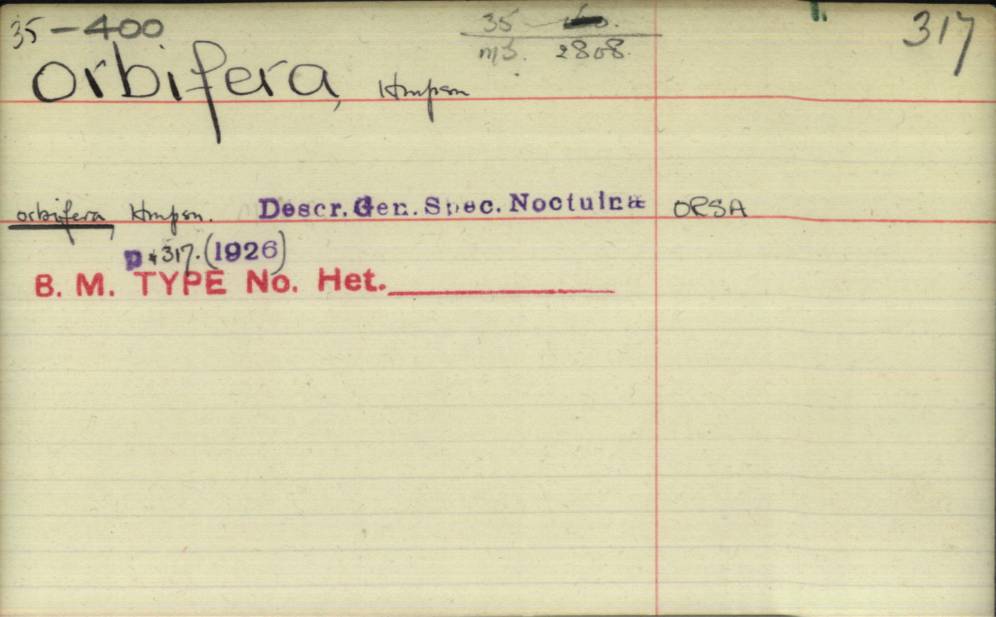 35-400
35
ms. 2808.
317
orbifera, Hmpsn
orbifera, Hmpsn. Descr. Gen. Spec. Noctuinæ ORSA
p 317. (1926)
B. M. TYPE No. Het.